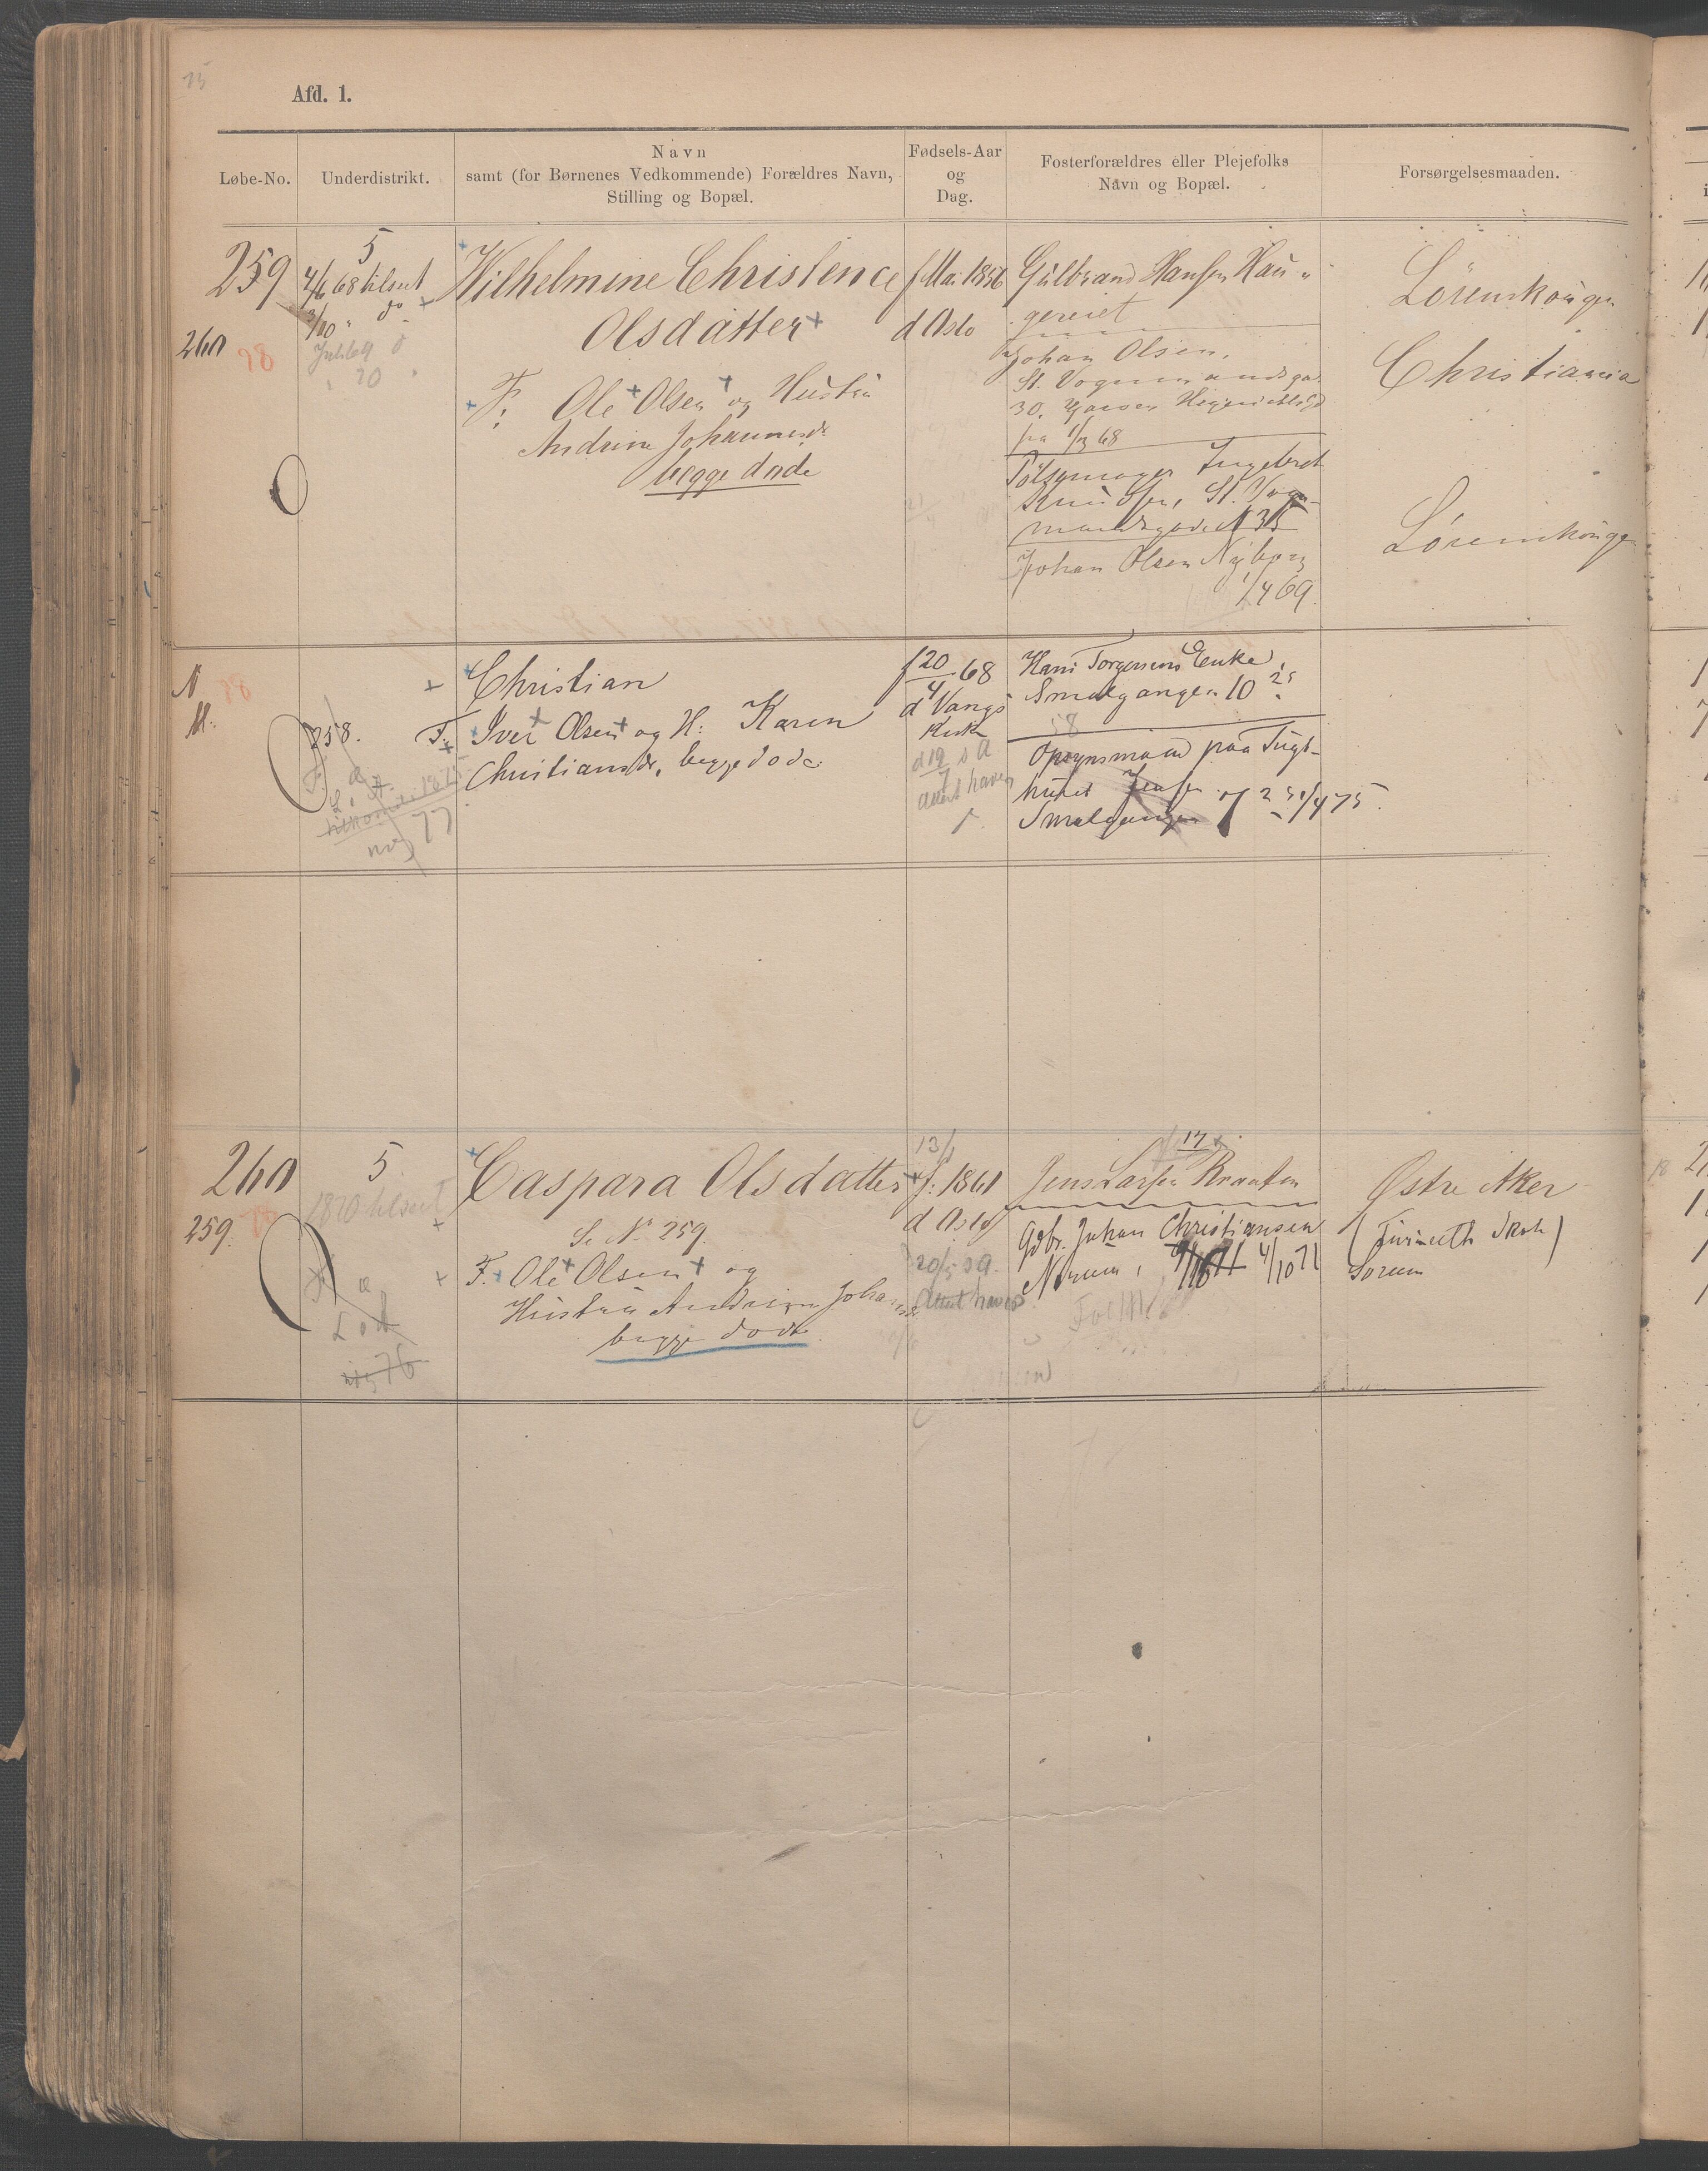 Afd. 1.
Løbe-No.
Underdistrikt.
Navn
samt (for Børnenes Vedkommende) Forældres Navn,
Stilling og Bopæl.
Fødsels-Aar
og
Dag.
Fosterforældres eller Plejefolks
Navn og Bopæl.
Forsørgelsesmaaden.
259
260
98
5
4/6 68 tilsaat
3/10 " do
Juli 69
" 70 "
Wilhelmine Christence
Olsdatter
F: Ole Olsen og Hustru
Andrine Johannesdr
begge døde
f Mai 1856
d Oslo
Gulbrand Hansen Hau-
gereiet
Johan Olsen,
St. Vognmandsga.
30,
fra 1/3 68
Pølsemager Ingebret
Knudsen, St. Vogn-
mandsgaden 35
Johan Olsen Nyborg
1/4 69
Lörenskougen
Christiania
Lörenskougen
N
88
258.
77
Christian
F. Iver Olsen og H: Karen
Christiansdr, begge døde
f 20/4 68
d Vangs
Kirke
d 19/7 s A
Attest haves
Hans Torgersens Enke
Smalgangen 10
Opsynsmand paa Tugt-
huset Jensen
Smalgangen 7
260
259.
5
1870 tilsaat
76
Caspara Olsdatter
Se No 259.
F. Ole Olsen og
Hustru Andrine Johannesdr
begge døde.
13/1
f: 1861
d Oslo
20/5 s A.
Attest haves
17
Jens Larsen Braaten
Gdbr. Johan Christiansen
Norum, 4/10 71
Østre Aker
Sorum